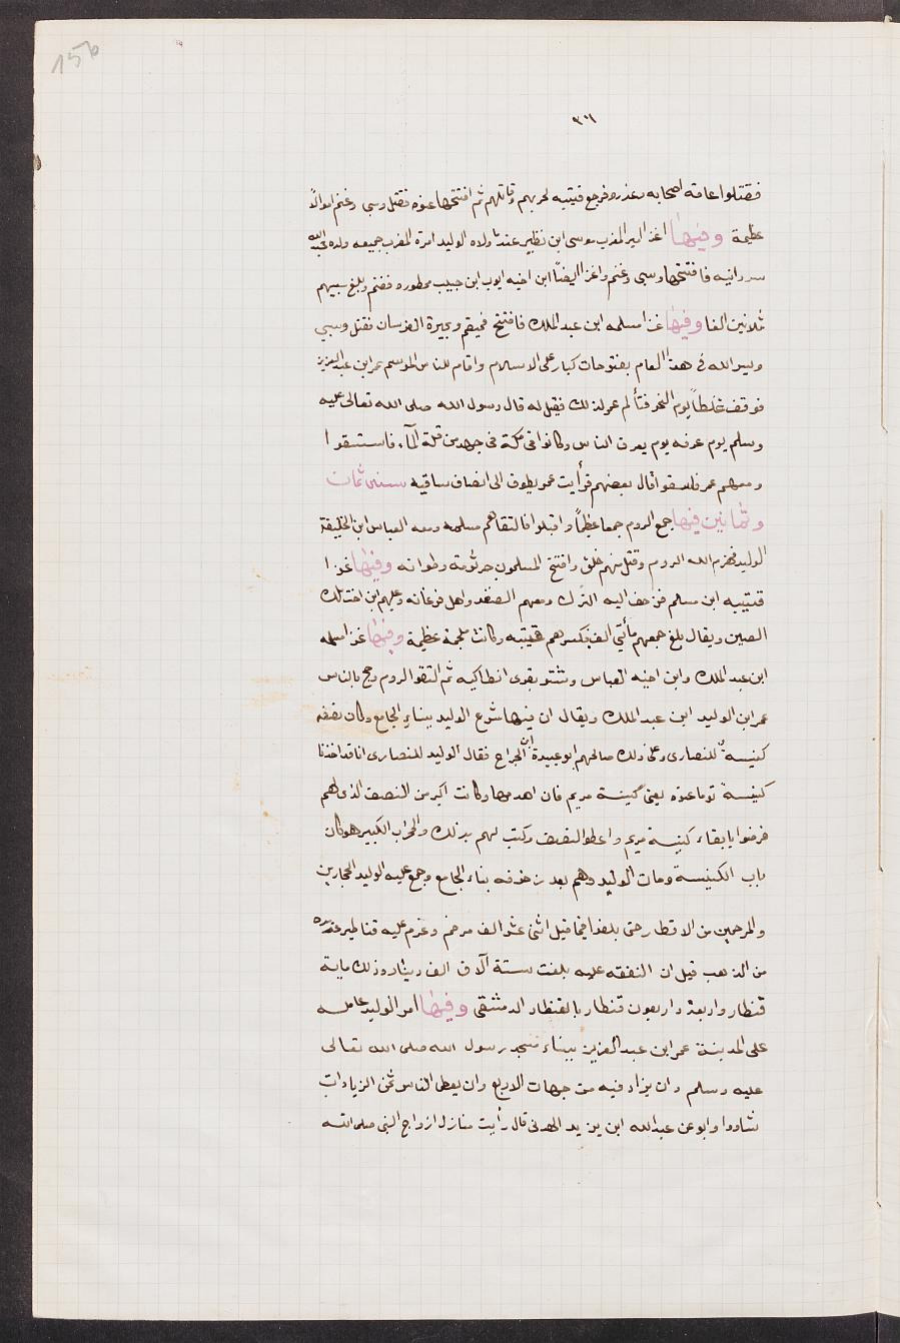 156
٣٦
فقتلوا عامة اصحابه وغدروا فرجع قتيبه لحربهم وقاتلهم ثم افتتحها عنوه فقتل وسبى وغنم اموالاً
عظيمة وفيها اغزا امير المغرب موسى ابن نصير عندما ولاه الوليد امرة المغرب جميعه ولده عبد الله
سردانيه فافتتحها وسبى وغنم واغزا ايضاً ابن اخيه ايوب ابن حبيب ممطوره فغنم وبلغ سبيهم
ثلاثين الفا وفيها غزا مسلمه ابن عبد الملك فافتتح قميقم وبحيرة الفرسان فقتل وسبى
ويسر الله فى هذا العام بفتوحات كبار على الاسلام واقام للناس الموسم عمر ابن عبد العزيز
فوقف غلطاً يوم النحر فتألم عمر لذلك فقيل له قال رسول الله صلى الله تعالى عليه
وسلم يوم عرفه يوم يعرف الناس وكانوا فى مكة فى جهد من قلة المآء فاستسقوا
ومعهم عمر فسقوا قال بعضهم فرأيت عمر يطوف الى انصاف ساقيه سنه ثمان
وثمانين فيها جمع الروم جمعا عظيماً واقبلوا فالتقاهم مسلمه ومعه العباس ابن الخليفة
الوليد فهزم الله الروم وقتل منهم خلق وافتتح المسلمون جرثومة وطوانه وفيها غزا
قتيبه ابن مسلم فزحف اليه الترك ومعهم الصغد واهل فرغانه وعليهم ابن اخت ملك
الصين ويقال بلغ جمعهم مأتي الف فكسرهم قتيبه وكانت ملحمة عظيمة وفيها غزا مسلمه
ابن عبد الملك وابن اخيه العباس وشتو بقرى انطاكيه ثم التقو الروم وحج بالناس
عمر ابن الوليد ابن عبد الملك ويقال ان فيها شرع الوليد ببناء الجامع وكان نصفه
كنيسة للنصارى وعلى ذلك صالحهم ابو عبيدة ابن الجراح فقال الوليد للنصارى انا قد اخذنا
كنيسة توما عنوه يعنى كنيسة مريم فان اهدمها وكانت اكبر من النصف الذى لهم
فرضوا بابقاء كنيسة مريم واعطوا النصف وكتب لهم بذلك والمحراب الكبير هو كان
باب الكنيسة ومات الوليد وهم بعد زخرفه بناء الجامع وجمع عليه الوليد الحجارين
والمرخمين من الاقطار حتى بلغوا فيما قيل اثنى عشر الف مرخم وغرم عليه قناطير عديده
من الذهب قيل ان النفقه عليه بلغت ستة آلاف الف دينار وذلك ماية
قنطار واربعة واربعون قنطار بالقنطار الدمشقى وفيها امر الوليد عامله
على المدينة عمر ابن عبد العزيز ببناء مسجد رسول الله صلى الله تعالى
عليه وسلم وان يزاد فيه من جهات الاربع وان يعطى الناس ثمن الزيادات
شاءوا وابو عن عبد الله ابن يزيد الهذلى قال رأيت منازل ازواج النبى صلى الله